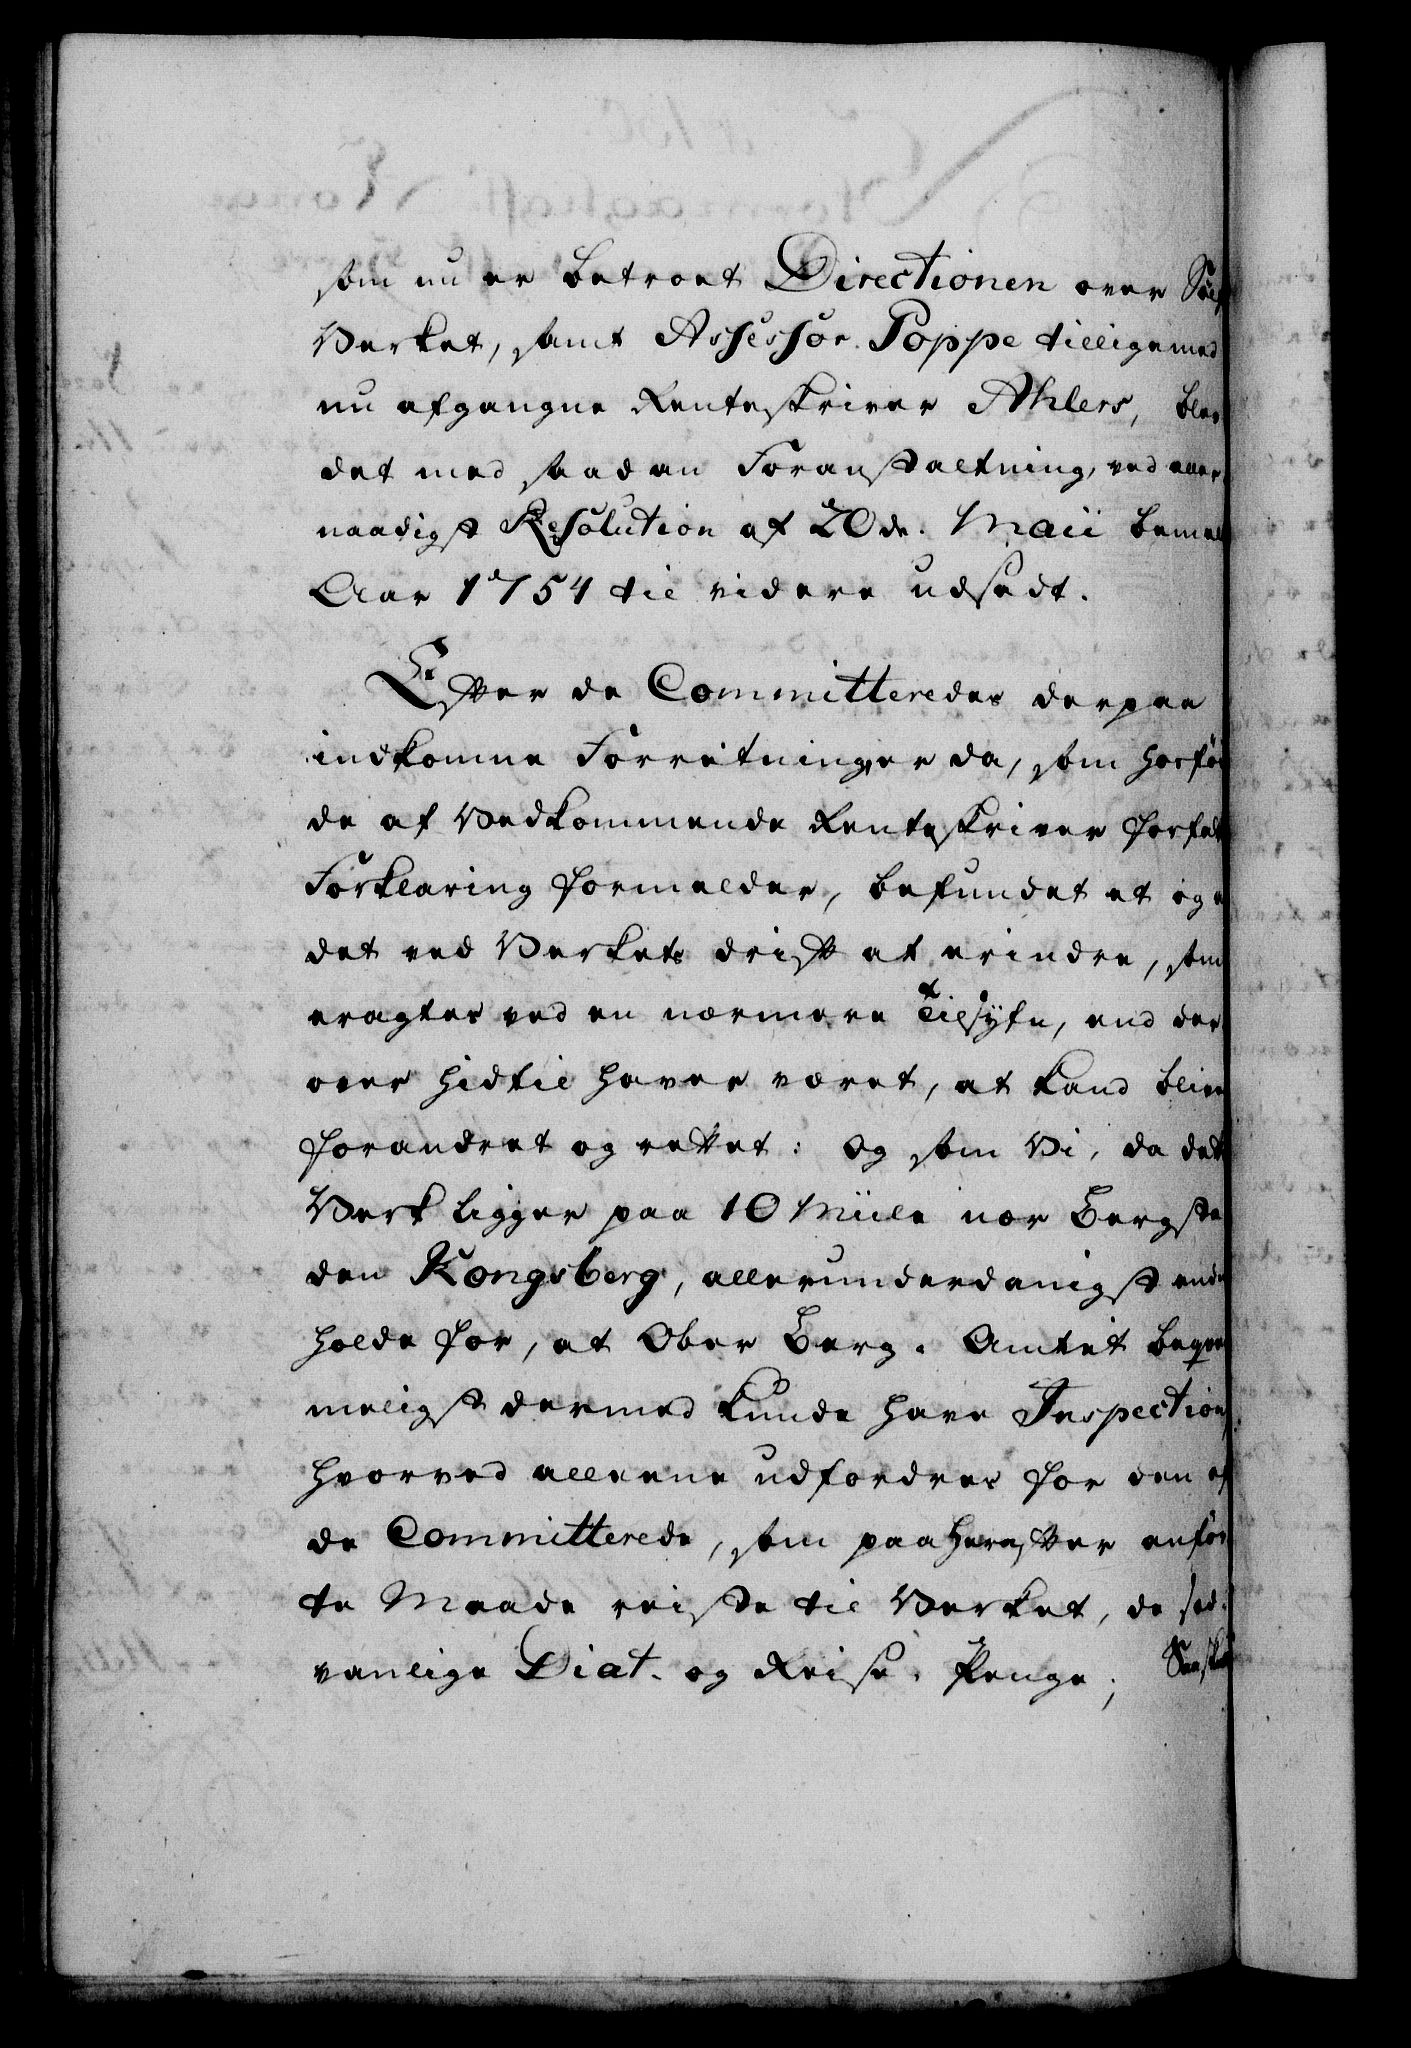 som nu er betroet Directionen over Sølf
Verket, samt Assessor Poppe tilligemed
nu afgangne Renteskriver Ahlers, blev
det med saadan Foranstaltning, ved aller
naadigst Resolution af 20de. Maii bemel
Aar 1754 til videre udsadt.
Efter de Committeredes derpaa
indkomne Forretninger da, som hosføi
de af Vedkommende Renteskriver forfat
Forklaring formelder, befundet et og a
det ved Verkets drift at erindre, som
eragtes ved en nærmere Tilsyfn, end der
over hidtil haver været, at kand blive
forandret og rettet: og som Vi, da dett
Verk ligger paa 10 Miile nær Bergsta
den Kongsberg, allerunderdanigst ende
holde for, at Ober Berg. Amtet beqve
meligst dermed kunde have Inspection,
hvorved alleene udfordres for den af
de Committerede, som paa herefter anfør
te Maade reiste til Verket, de sæd:
vanlige Diæt. og Reise. Penge;